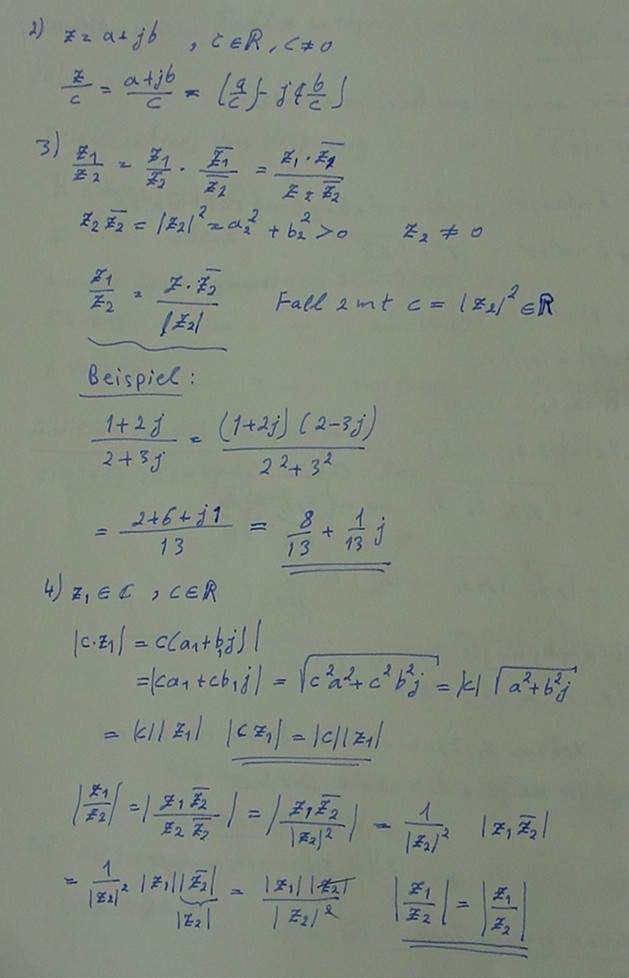 2) z = a + jb , c ∈ ℝ, c ≠ 0
z/c = (a+jb)/c = (a/c) - j(b/c)
3) z1/z2 = z1/z2 · z̄1/z̄2 = (z1 · z̄2)/(z2 z̄2)
z2 z̄2 = |z2|² = a2² + b2² > 0 z2 ≠ 0
z1/z2 = (z · z̄2)/|z2| Fall 2 mt c = |z2|² ∈ ℝ
Beispiel:
(1+2j)/(2+3j) = ((1+2j)(2-3j))/(2²+3²)
= (2+6+j1)/13 = 8/13 + 1/13 j
4) z1 ∈ ℂ , c ∈ ℝ
|c·z1| = c(a1+b1j)|
= |ca1 + cb1j| = √(c²a²+c²b²j) = |c| √(a²+b²j)
= |c||z1| |c z1| = |c||z1|
|z1/z2| = |(z1 z̄2)/(z2 z̄2)| = |(z1 z̄2)/|z2|²| = 1/|z2|² |z1 z̄2|
= 1/|z2|² |z1||z̄2| = (|z1||z2|)/|z2|² |z1/z2| = |z1/z2|
|z2|